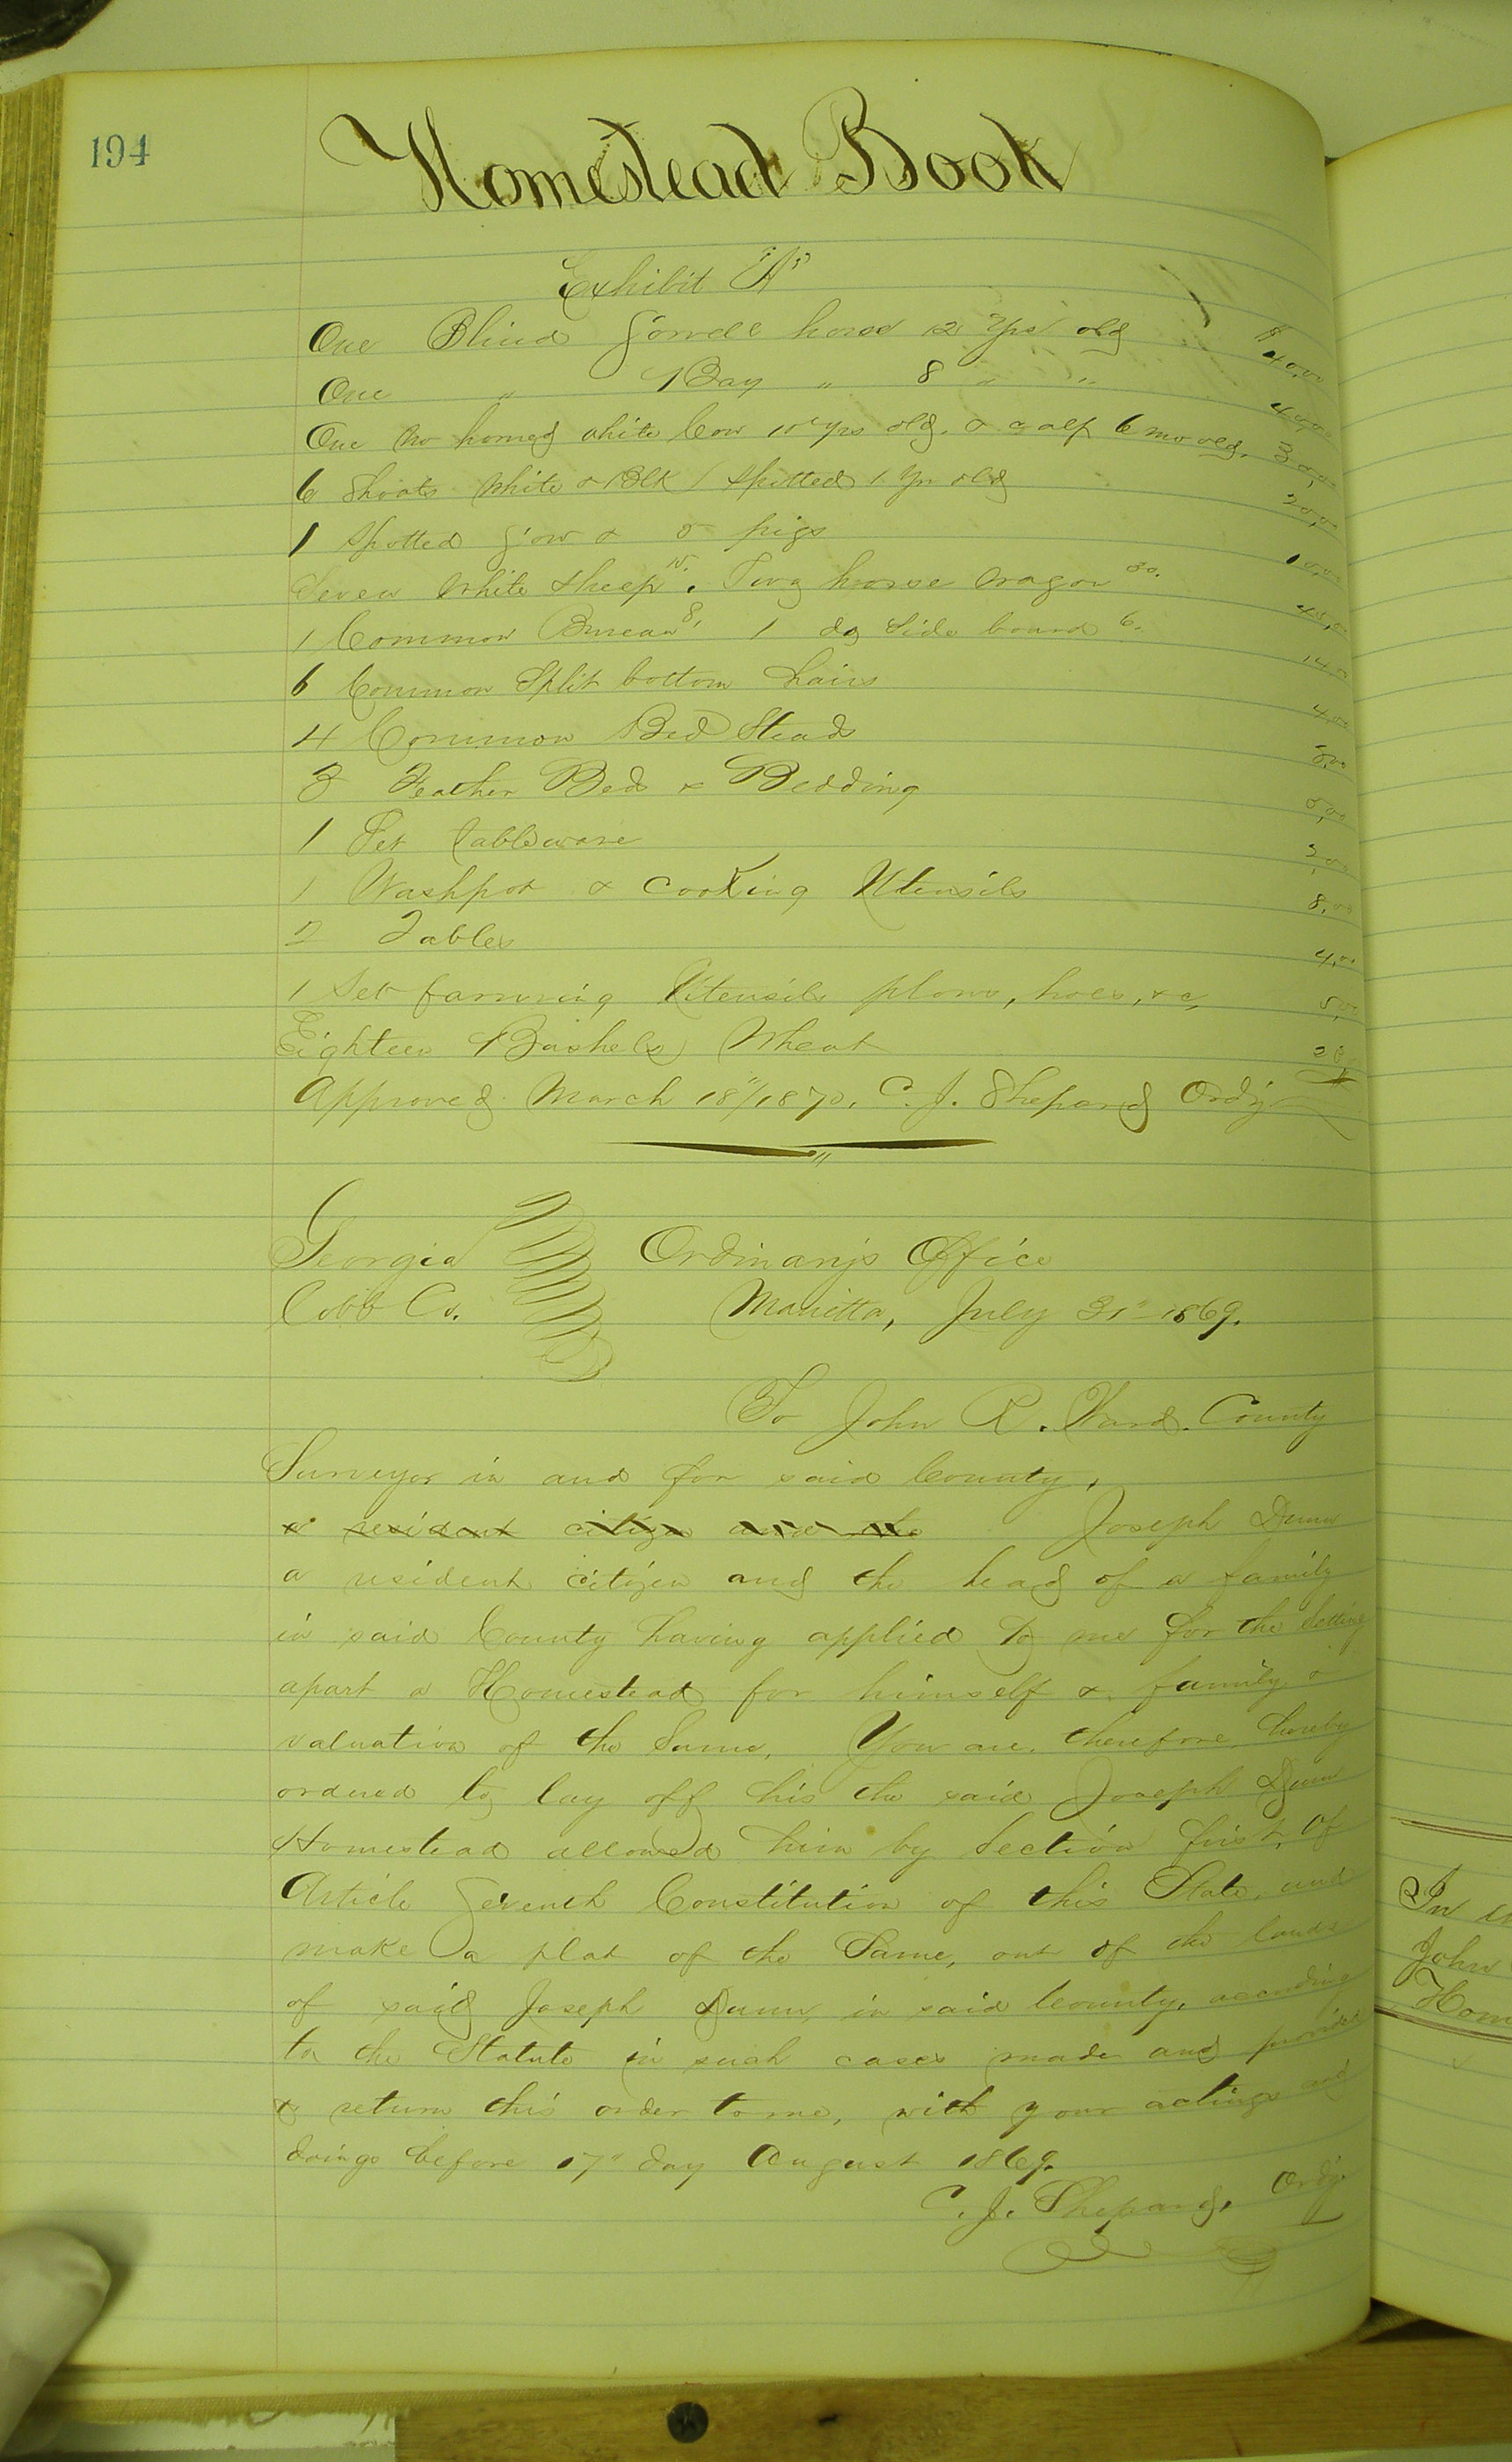 194
Homestead Book
Exhibit "A"
One Blind Sorrell horse 12 Yrs old $40,00
One " Bay " 8 " " 40,00
One No horned white Cow 10 yrs old. & calf 6 mo old. 30,00
6 Shoats White & Blk / Spotted 1 Yr old 20,00
1 Spotted Sow & 5 pigs 10,00
Seven White Sheep 15. Two horse Wagon 30. 45,00
1 Common Bureau 8, 1 do Side board 6. 14,00
6 Common Split bottom Chairs 4,00
4 Common Bed Steads
3 Feather Beds & Bedding
1 Set tableware 2,00
1 Washpot & Cooking Utensils 8,00
2 Tables 4,00
1 Set farming Utensils plows, hoes, &c, 5,00
Eighteen Bushels Wheat
Approved March 18"/1870. C. J. Shepard Ordy
Georgia Ordinarys Office
Cobb Co. Marietta, July 31" 1869.
To John R. Ward. County
Surveyor in and for said County,
a resident citizen and the Joseph Dunn
a resident citizen and the head of a family
in said County having applied to me for the Setting
apart a Homestead for himself & family &
valuation of the Same, You are therefore hereby
ordered to lay off his the said Joseph Dunn
Homestead allowed him by Section first, of
Article Seventh Constitution of this State, and
make a plat of the Same, out of the lands
of said Joseph Dunn, in said County, according
to the Statute in such cases made and provided
& return this order to me, with your actings and
doings before 17" day August 1869.
C. J. Shepard, Ordy.
In
John
Hom